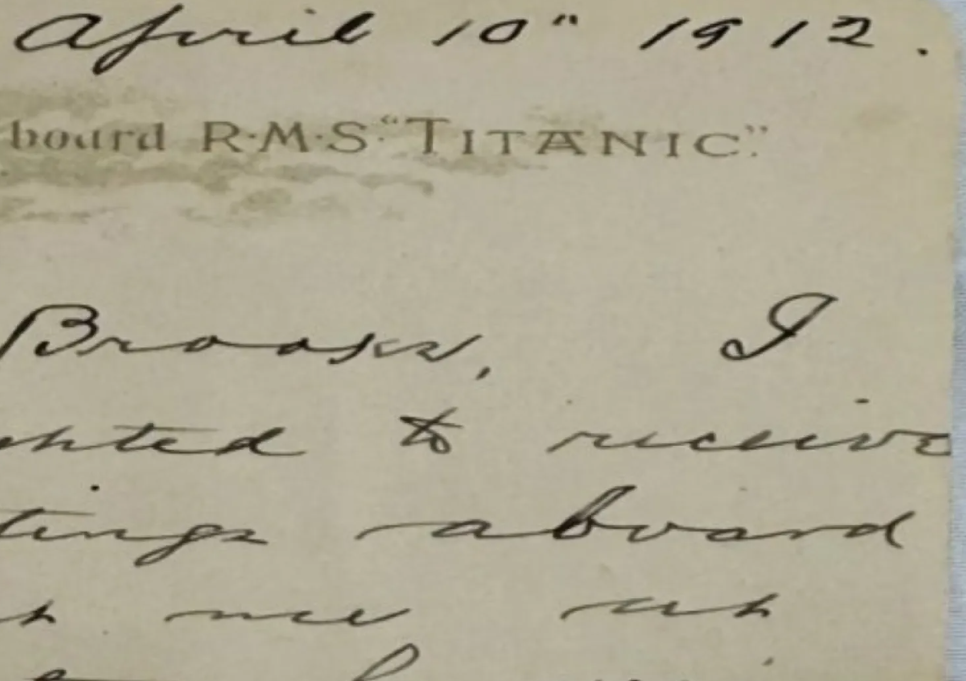 April 10" 1912.
board R·M·S·"TITANIC".
Brooks, I
ghted to receive
tings aboard
me up